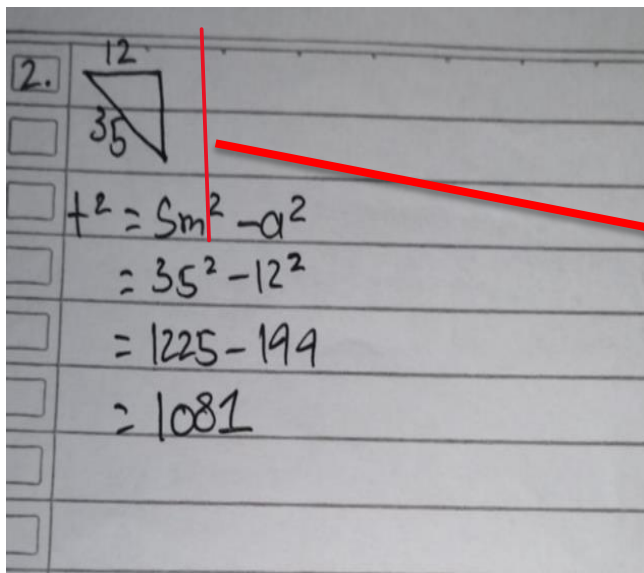 2.
12
35
t² = Sm² - a²
= 35² - 12²
= 1225 - 144
= 1081